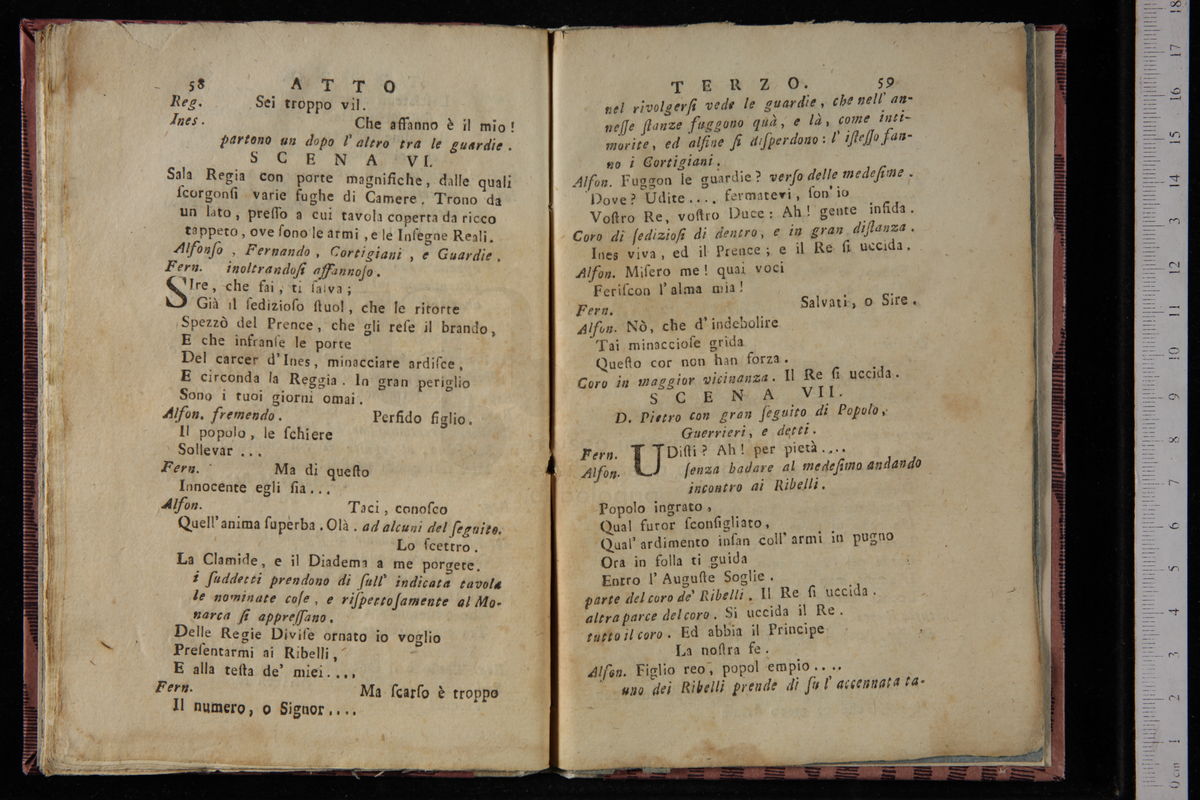 58 ATTO
Reg. Sei troppo vil.
Ines. Che affanno è il mio!
partono un dopo l'altro tra le guardie.
SCENA VI.
Sala Regia con porte magnifiche, dalle quali
ſcorgonſi varie fughe di Camere. Trono da
un lato, preſſo a cui tavola coperta da ricco
tappeto, ove ſono le armi, e le Inſegne Reali.
Alfonſo, Fernando, Cortigiani, e Guardie.
Fern. inoltrandoſi affannoſo.
SIre, che fai, ti ſalva;
Già il ſedizioſo ſtuol, che le ritorte
Spezzò del Prence, che gli reſe il brando,
E che infranſe le porte
Del carcer d'Ines, minacciare ardiſce,
E circonda la Reggia. In gran periglio
Sono i tuoi giorni omai.
Alfon. fremendo. Perfido figlio.
Il popolo, le ſchiere
Sollevar ...
Fern. Ma di queſto
Innocente egli ſia...
Alfon. Taci, conoſco
Quell'anima ſuperba. Olà. ad alcuni del ſeguito.
Lo ſcettro.
La Clamide, e il Diadema a me porgete.
i ſuddetti prendono di ſull' indicata tavola
le nominate coſe, e riſpettoſamente al Mo-
narca ſi appreſſano.
Delle Regie Diviſe ornato io voglio
Preſentarmi ai Ribelli,
E alla teſta de' miei....
Fern. Ma ſcarſo è troppo
Il numero, o Signor....
TERZO. 59
nel rivolgerſi vede le guardie, che nell' an-
neſſe ſtanze fuggono quà, e là, come inti-
morite, ed alfine ſi diſperdono: l' iſteſſo fan-
no i Cortigiani.
Alfon. Fuggon le guardie? verſo delle medeſime.
Dove? Udite.... fermatevi, ſon' io
Voſtro Re, voſtro Duce: Ah! gente infida.
Coro di ſedizioſi di dentro, e in gran diſtanza.
Ines viva, ed il Prence; e il Re ſi uccida.
Alfon. Miſero me! quai voci
Feriſcon l'alma mia!
Fern. Salvati, o Sire.
Alfon. Nò, che d'indebolire
Tai minaccioſe grida
Queſto cor non han forza.
Coro in maggior vicinanza. Il Re ſi uccida.
SCENA VII.
D. Pietro con gran ſeguito di Popolo,
Guerrieri, e detti.
Fern. UDiſti? Ah! per pietà....
Alfon. ſenza badare al medeſimo andando
incontro ai Ribelli.
Popolo ingrato,
Qual furor ſconſigliato,
Qual' ardimento inſan coll' armi in pugno
Ora in folla ti guida
Entro l' Auguſte Soglie.
parte del coro de' Ribelli. Il Re ſi uccida.
altra parce del coro. Si uccida il Re.
tutto il coro. Ed abbia il Principe
La noſtra fe.
Alfon. Figlio reo, popol empio....
uno dei Ribelli prende di ſu l' accennata ta-
0 cm 1 2 3 4 5 6 7 8 9 10 11 12 13 14 15 16 17 18